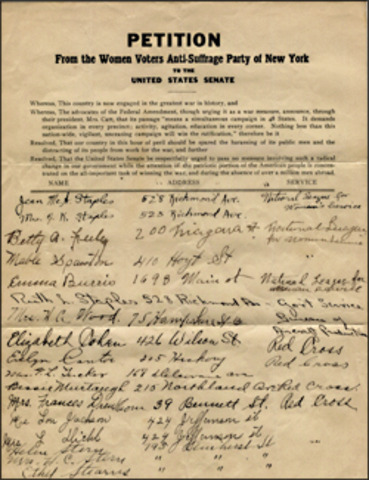 PETITION
From the Women Voters Anti-Suffrage Party of New York
TO THE
UNITED STATES SENATE
Whereas, This country is now engaged in the greatest war in history, and
Whereas, The advocates of the Federal Amendment, though urging it as a war measure, announce, through
their president, Mrs. Catt, that its passage "means a simultaneous campaign in 48 States. It demands
organization in every precinct; activity, agitation, education in every corner. Nothing less than this
nation-wide, vigilant, unceasing campaign will win the ratification," therefore be it
Resolved, That our country in this hour of peril should be spared the harassing of its public men and the
distracting of its people from work for the war, and further
Resolved, That the United States Senate be respectfully urged to pass no measure involving such a radical
change in our government while the attention of the patriotic portion of the American people is concen-
trated on the all-important task of winning the war, and during the absence of over a million men abroad.
NAME ADDRESS SERVICE
Staples 525 Richmond Ave. National League for
Woman's Service
Mrs. Staples 525 Richmond Ave.
Betty A. 200 Niagara St National League
for
Mable 410 Hoyt St
Emma Burris 1698 Main st National League for
Ruth L. Staples 525 Richmond Ave - Govt Service
Mrs. H. A. Wood. 75 Hampshire St
Elizabeth 426 Wilson St. Red Cross
Evelyn Cantor 205 Hickory Red Cross
Tucker 168 Delaware ave
Bessie 215 Northland Ave Red Cross.
Mrs Frances 39 Bennett St. Red Cross
Jackson 424 Jefferson St
Mrs. L. 424 Jefferson St "
Helen Stern 193
Mrs. H. C. Stern " " "
Ethel Stearns " " "